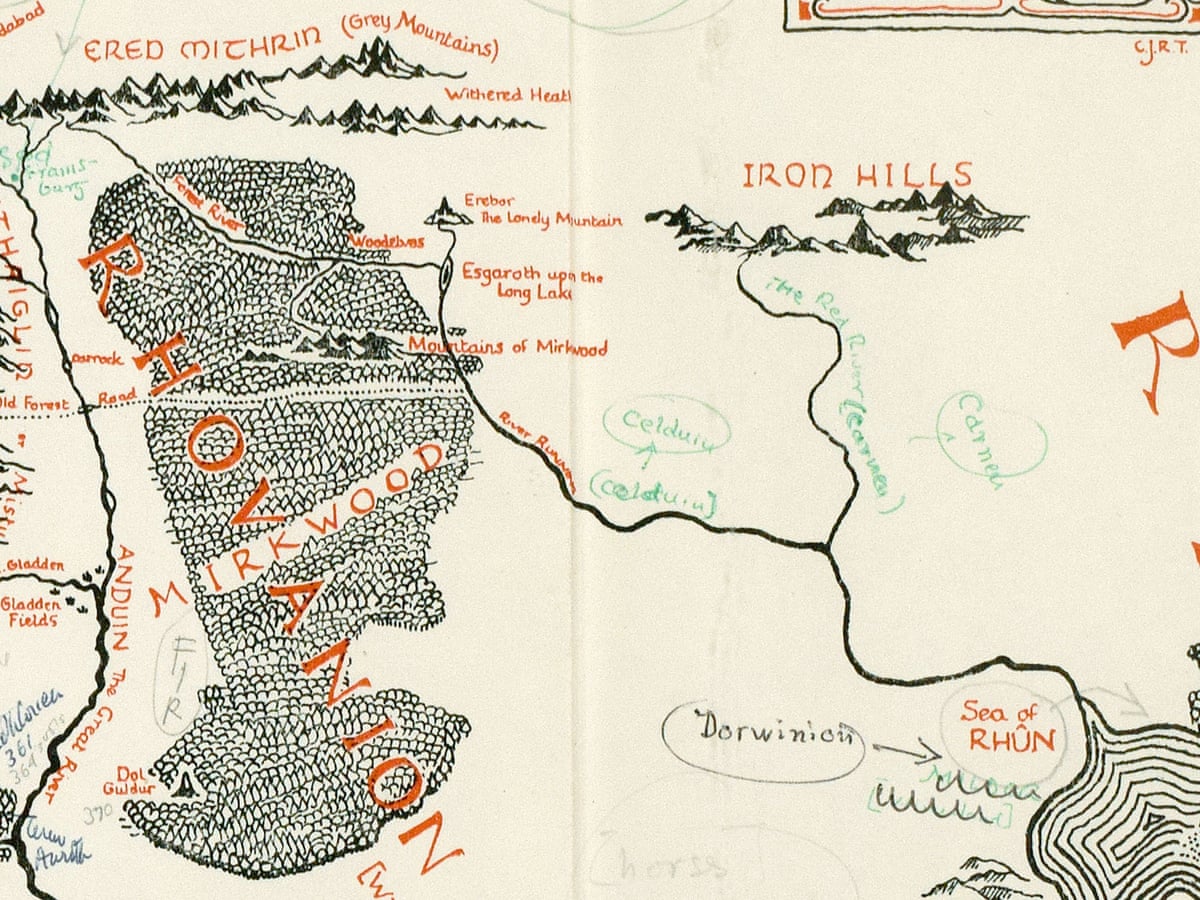 dabad
ERED MITHRIN (Grey Mountains)
C.J.R.T.
Withered Heath
Frams-
burg
IRON HILLS
Forest River
Erebor
The Lonely Mountain
Woodelves
Esgaroth upon the
Long Lake
The Red River (Carnen)
R
Mountains of Mirkwood
Carrock
Old Forest Road
Celduin
(Celduin)
Carnen
River Running
RHOVANION
MIRKWOOD
Gladden
Gladden
Fields
ANDUIN The Great River
FIR
361
364
Dorwinion
Sea of
RHÛN
Dol
Guldur
390
horses
[W